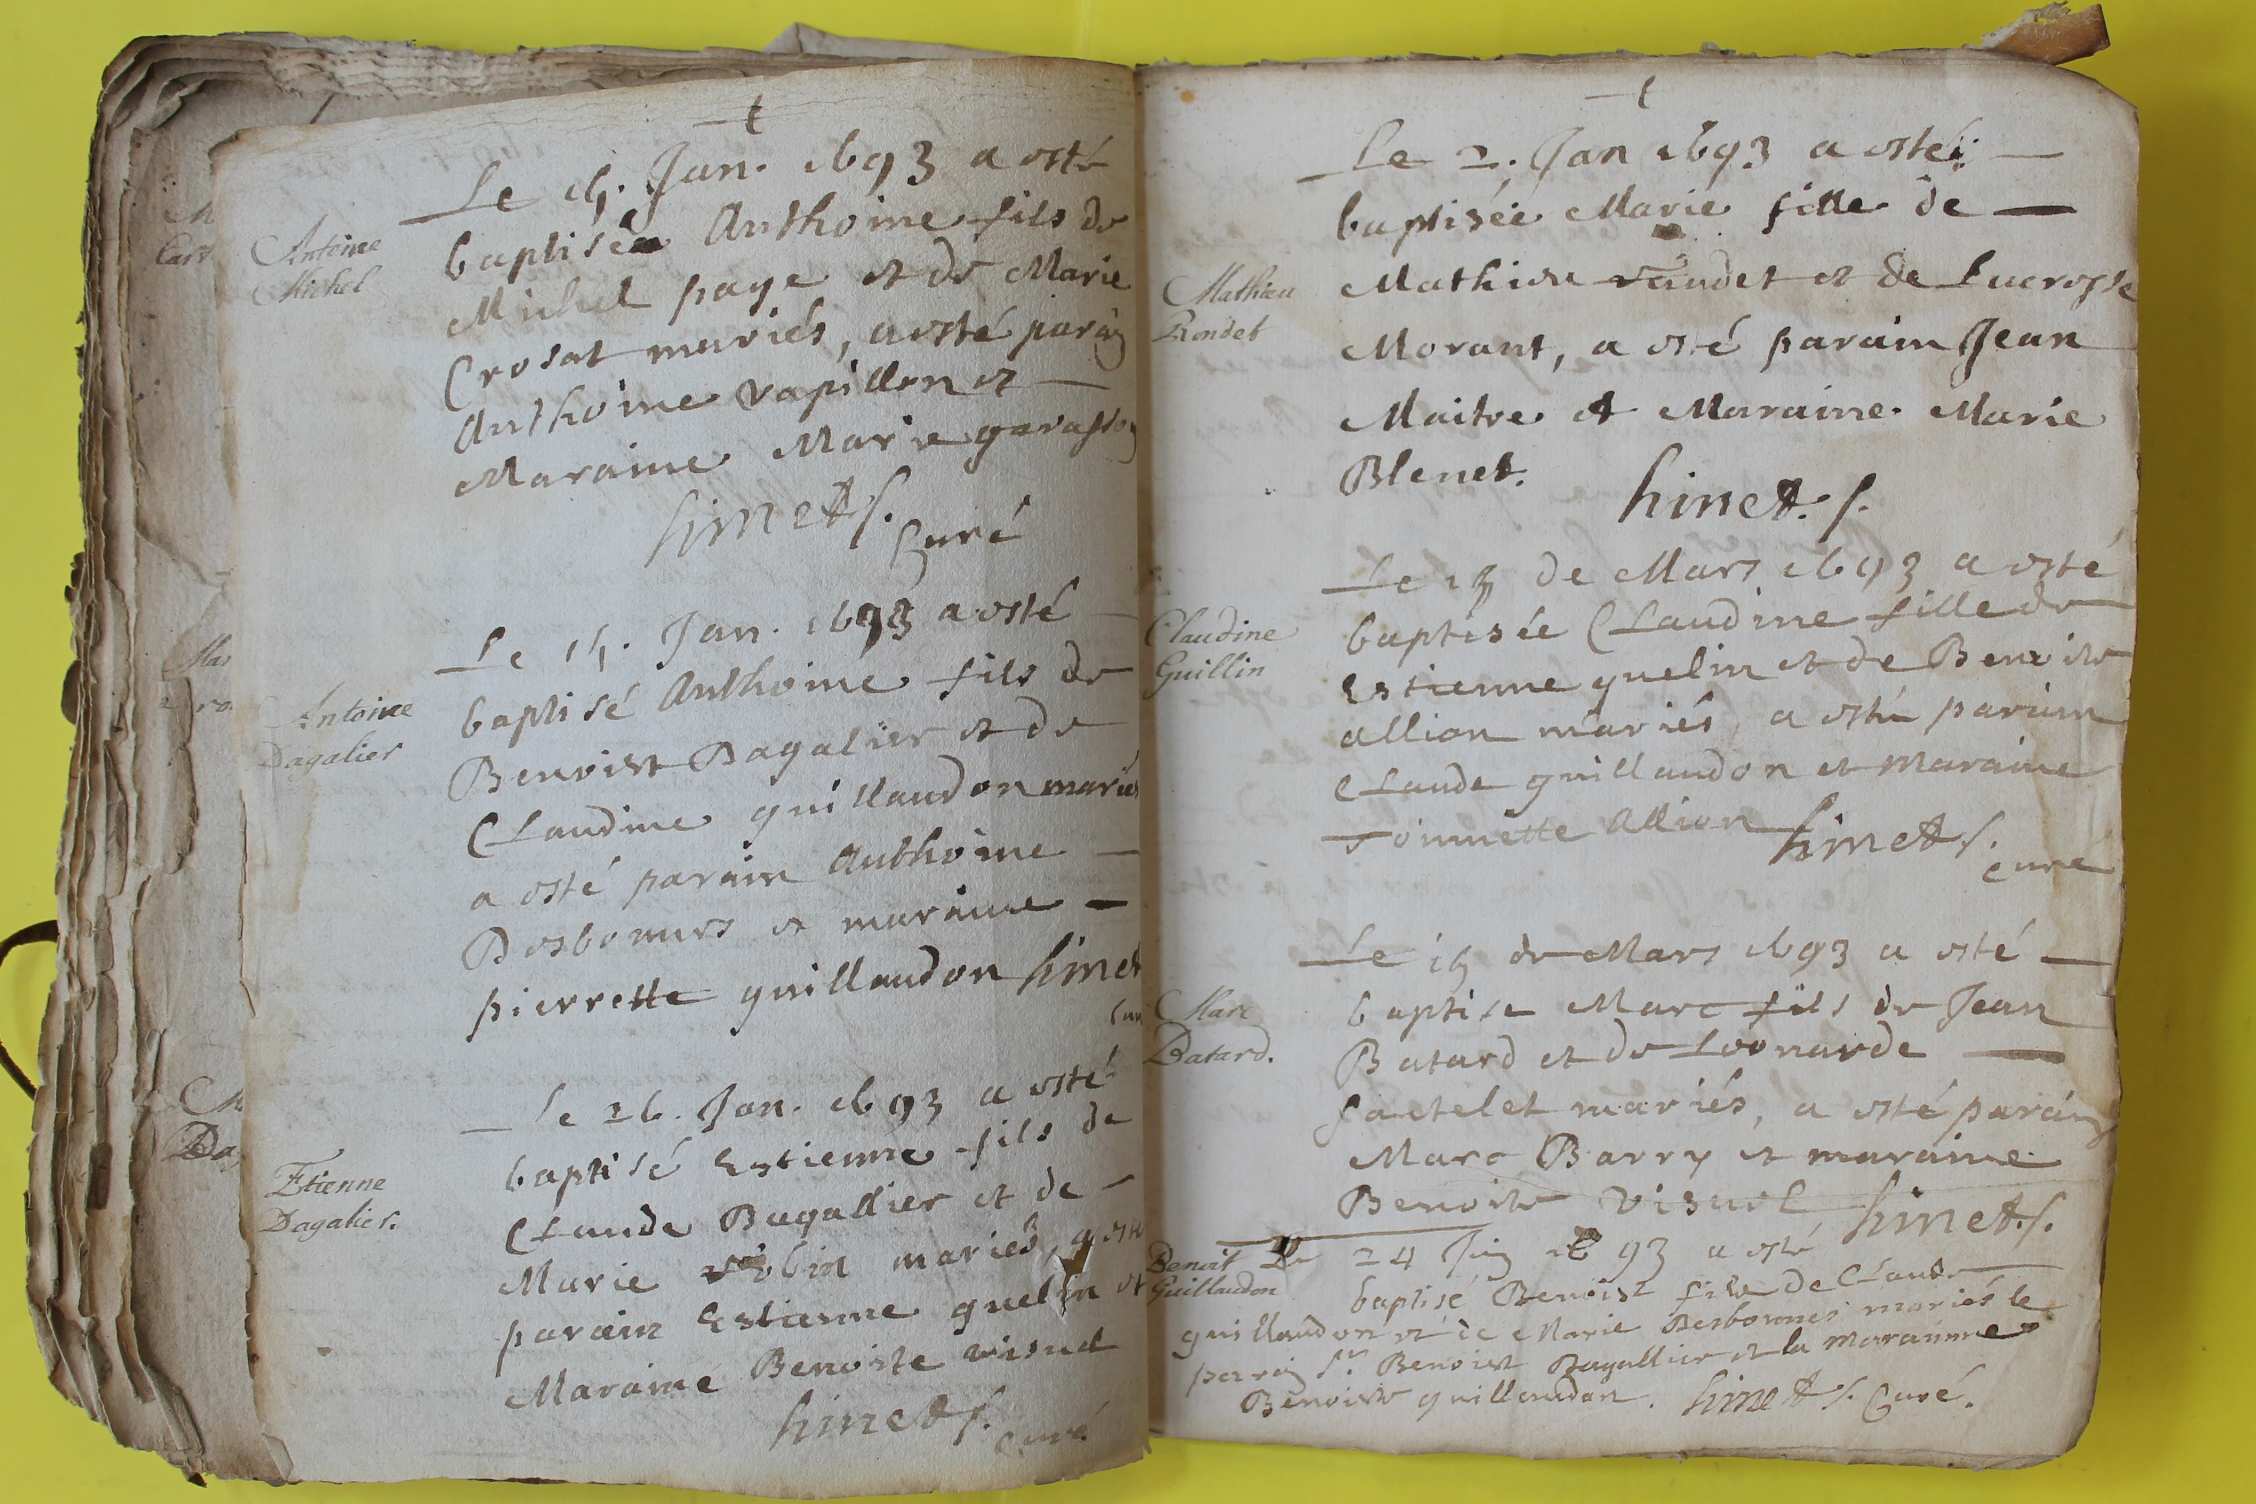 Le 15. Jan. 1693 a esté
baptisé Anthoine fils de
Michel page et de Marie
Crosat mariés, a esté parain
Anthoine vapillon et
Maraine Marie
hinet s.
Curé
Antoine
Michel
Le 15. Jan. 1693 a esté
baptisé Anthoine fils de
Benoist Dagalier et de
Claudine guillaudon mariés
a esté parain Anthoine
Desbonnes et maraine
pierrette guillaudon hinet
Antoine
Dagalier
Le 26. Jan. 1693 a esté
baptisé Estienne fils de
Claude Dagallier et de
Marie robin mariés, a esté
parain Estienne guelin et
Maraine Benoiste visuel
hinet s.
Curé
Etienne
Dagalier.
Le 2. Jan 1693 a esté
baptisée Marie fille de
Mathieu randet et de Lucresse
Morant, a esté parain Jean
Maitre et Maraine Marie
Blenet.
hinet. s.
Mathieu
Rondet
Le 13 de Mars 1693 a esté
baptisée Claudine fille de
Estienne guelin et de Benoite
allion mariés, a esté parain
Claude guillaudon et Maraine
Toinnette allion hinet s.
curé
Claudine
Guillin
Le 15 de Mars 1693 a esté
baptise Marc fils de Jean
Batard et de Leonarde
mariés, a esté parain
Marc Barry et maraine
Benoite visuel hinet. s.
Marc
Batard.
Le 24 Juin 1693 a esté
baptisé Benoist fils de Claude
guillaudon et de Marie Desbonnes mariés le
parain sr. Benoist Dagallier et la marainne
Benoite guillaudon. hinet s. Curé.
Benoit
Guillaudon